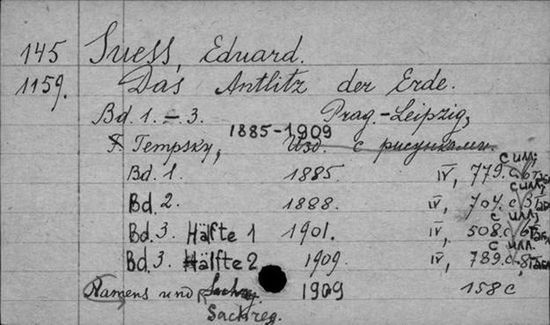 145 Suess, Eduard.
1159. Das Antlitz der Erde.
Bd. 1.–3. Prag.-Leipzig,
1885-1909
F. Tempsky, Изд. с рисунками.
с илл;
Bd. 1. 1885 IV, 779.с
с илл;
Bd. 2. 1888. IV, 704.с
с илл;
Bd. 3. Hälfte 1 1901. IV, 508.с
с илл.
Bd. 3. Hälfte 2 1909. IV, 789.с,
Namens und 1909 158 с
Sachreg.